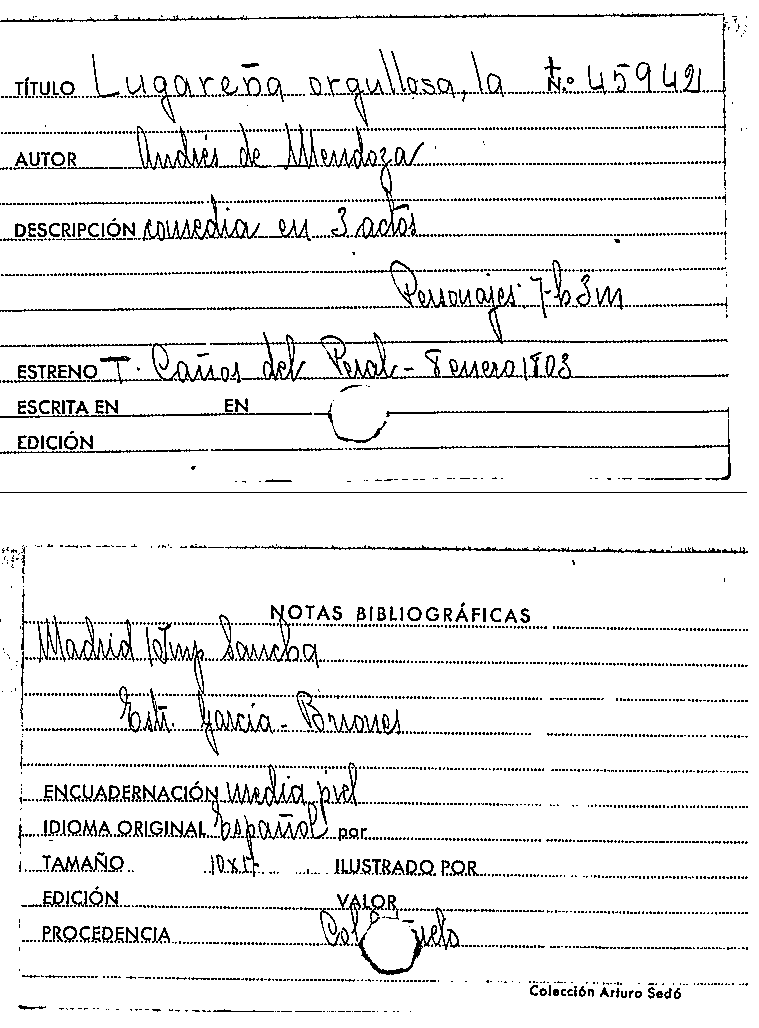 TÍTULO Lugareña orgullosa, la N.º 45942
AUTOR Andrés de Mendoza
DESCRIPCIÓN comedia en 3 actos
Personajes 7h3m
ESTRENO T. Caños del Peral - 8 enero 1803
ESCRITA EN EN
EDICIÓN
NOTAS BIBLIOGRÁFICAS
Madrid Imp Sancha
Estr. García - Briones
ENCUADERNACIÓN media piel
IDIOMA ORIGINAL Español por
TAMAÑO 10x17 ILUSTRADO POR
EDICIÓN VALOR
PROCEDENCIA Col
Colección Arturo Sedó